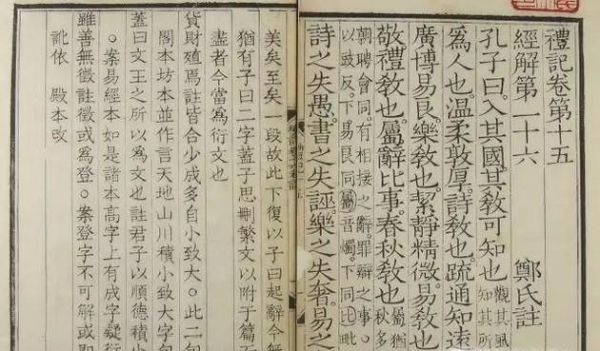 禮記卷第十五
經解第二十六　鄭氏註
孔子曰入其國其教可知也觀其風知其所
爲人也溫柔敦厚詩教也疏通知遠
廣博易良樂教也絜靜精微易教也
敬禮教也屬辭比事春秋教也屬猶秋多
朝聘會同有相接之辭罪辯之事
以豉反下易良同屬音燭下同比
詩之失愚書之失誣樂之失奢易之
美矣至矣一段故此下復以子曰起辭今無
猶有子曰二字蓋子思刪繁文以附于篇
盡者今當爲衍文也
貨財殖焉註皆合少成多自小致大此二句
閣本坊本並作言天地山川積小致大字
蓋曰文王之所以爲文也註君子以順德積小
案易經本如是諸本高字上有成字疑衍
雖善無徵註徵或爲登案登字不可解或
訛依　殿本改